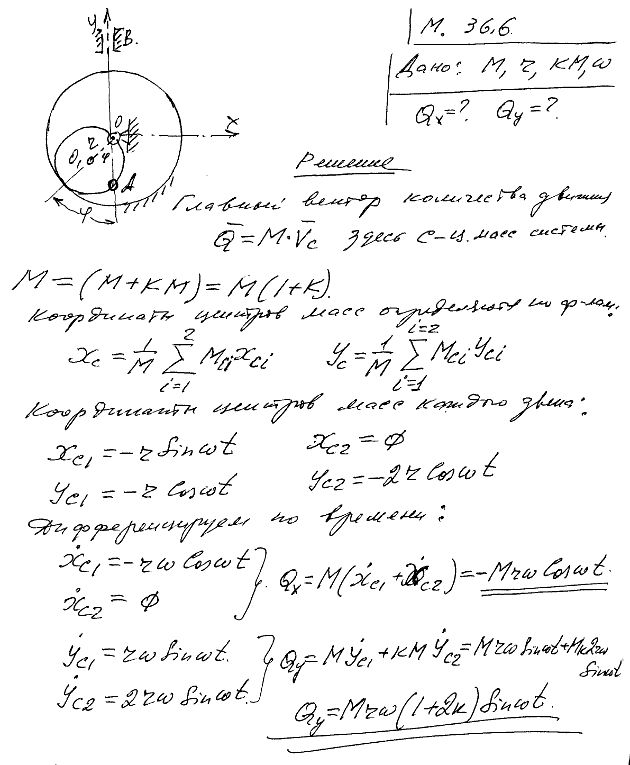 М. 36.6.
Дано: М, r, kM, ω
Qx=? Qy=?
y B.
O x
r
O₁ φ A
φ
Решение
Главный вектор количества движения
Q̄ = M·V̄c здесь С-ц. масс системы.
M = (M+KM) = M(1+K).
Координаты центров масс определяются по ф-лам:
xc = 1/M Σ(i=1..2) Mci xci   yc = 1/M Σ(i=1..i=2) Mci yci
Координаты центров масс каждого звена:
xc1 = -r Sinωt   xc2 = 0
yc1 = -r Cosωt   yc2 = -2r Cosωt
Дифференцируем по времени:
ẋc1 = -rω Cosωt
ẋc2 = 0
} Qx = M(ẋc1 + ẋc2) = -Mrω Cosωt.
ẏc1 = rω Sinωt.
ẏc2 = 2rω Sinωt.
} Qy = Mẏc1 + KMẏc2 = Mrω Sinωt + MK2rω Sinωt
Qy = Mrω(1+2K) Sinωt.